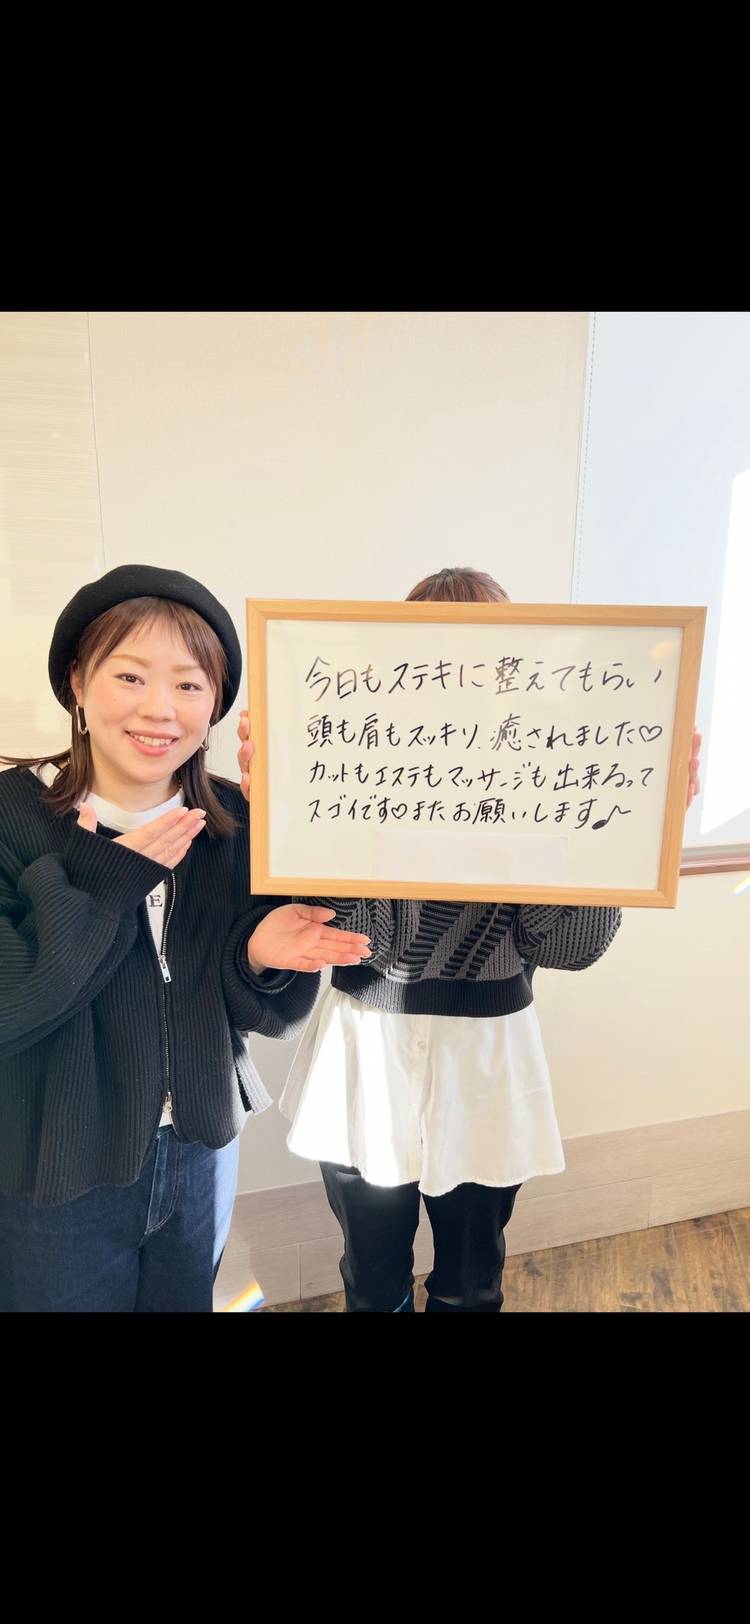 今日もステキに整えてもらい
頭も肩もスッキリ、癒されました♡
カットもエステもマッサージも出来るって
スゴイです♡またお願いします♪〜